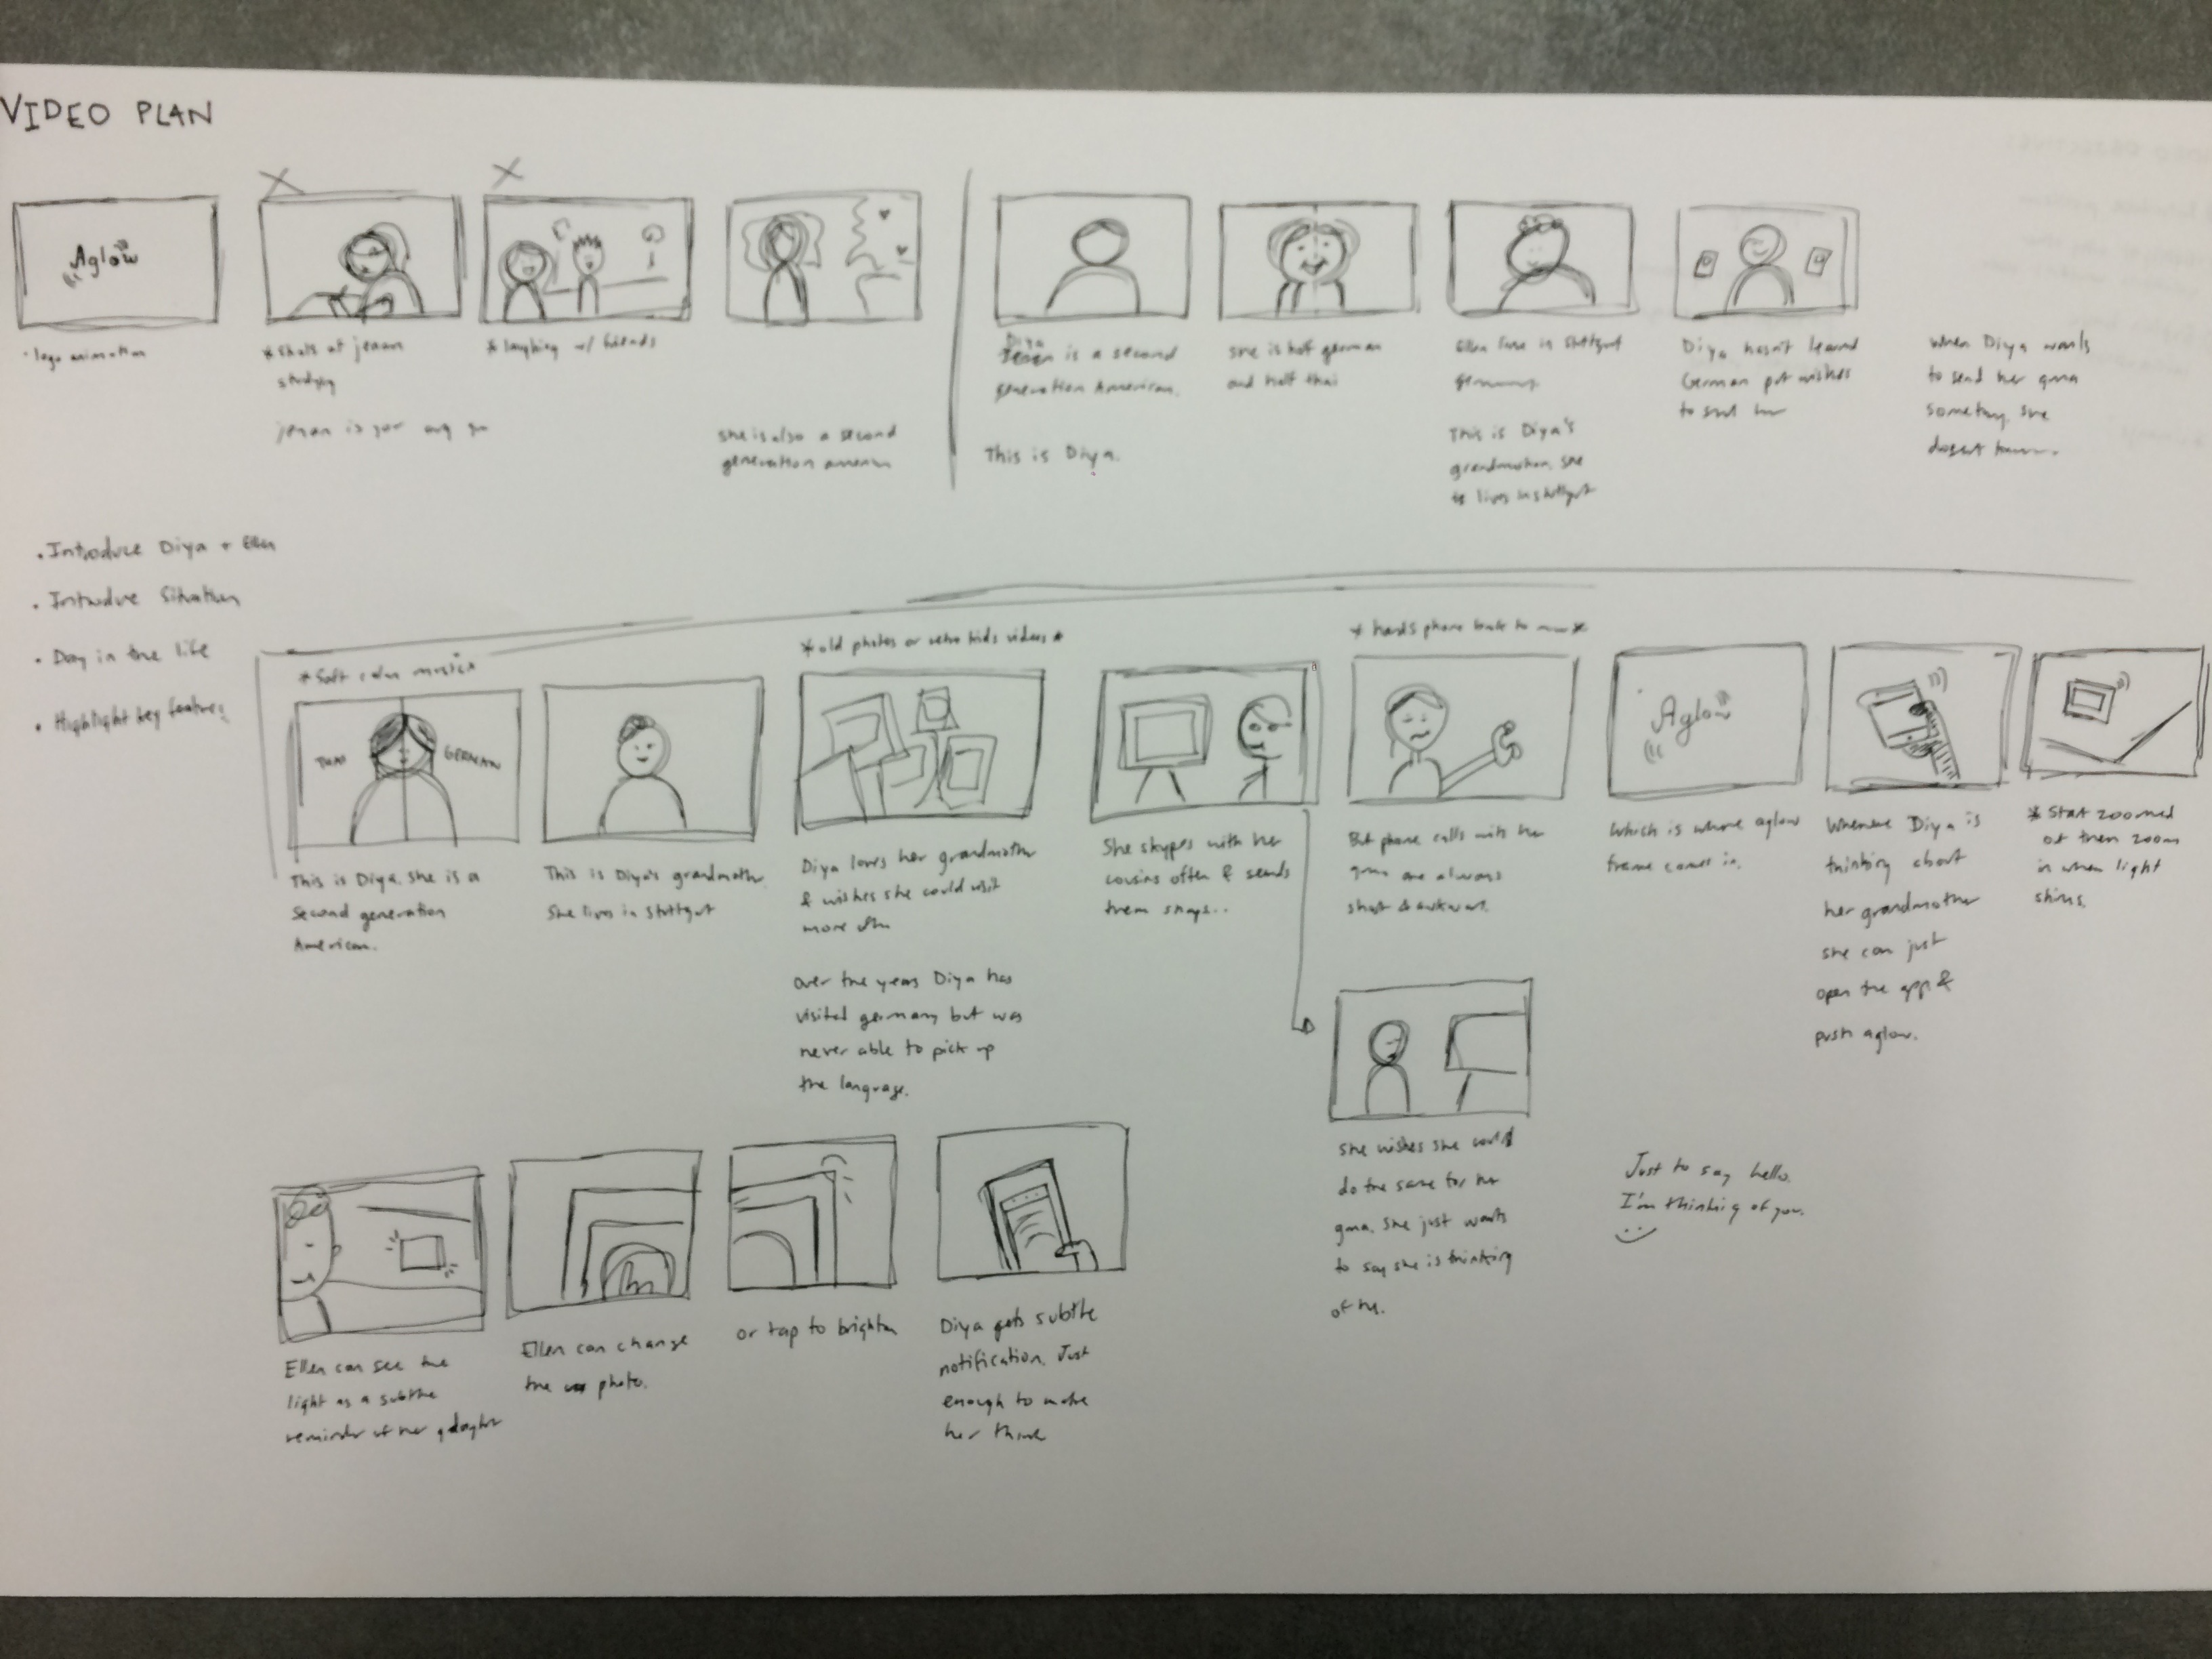 VIDEO PLAN
Aglow
logo animation
* shots of jenan
studying
jenan is your avg
* laughing w/ friends
she is also a second
generation american
Diya
is a second
generation American.
This is Diya.
she is half german
and half thai
Ellen lives in stuttgart
germany
This is Diya's
grandmother. she
lives in stuttgart
Diya hasn't learned
German but wishes
to
When Diya wants
to send her gma
something, she
doesn't know.
• Introduce Diya + Ellen
• Introduce Situation
• Day in the life
• Highlight key features
* soft calm music *
THAI
GERMAN
This is Diya. She is a
second generation
American.
This is Diya's grandmother.
She lives in stuttgart
* old photos or retro kids videos *
Diya loves her grandmother
& wishes she could visit
more often
over the years Diya has
visited germany but was
never able to pick up
the language.
She skypes with her
cousins often & sends
them snaps..
* hands phone back to mom *
But phone calls with her
gma are always
short & awkward.
She wishes she could
do the same for her
gma. She just wants
to say she is thinking
of her.
Aglow
Which is where aglow
frame comes in.
Whenever Diya is
thinking about
her grandmother
she can just
open the app &
push aglow.
* Start zoomed
out then zoom
in when light
shines.
Just to say hello.
I'm thinking of you.
Ellen can see the
light as a subtle
reminder of her gdaughter
Ellen can change
the photo.
or tap to brighten
Diya gets subtle
notification. Just
enough to make
her think